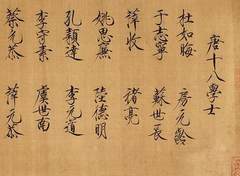 唐十八學士
杜如晦 房元齡
于志寧 蘇世長
薛收 褚亮
姚思廉 陸德明
孔穎達 李元道
李守素 虞世南
蔡允恭 薛元敬